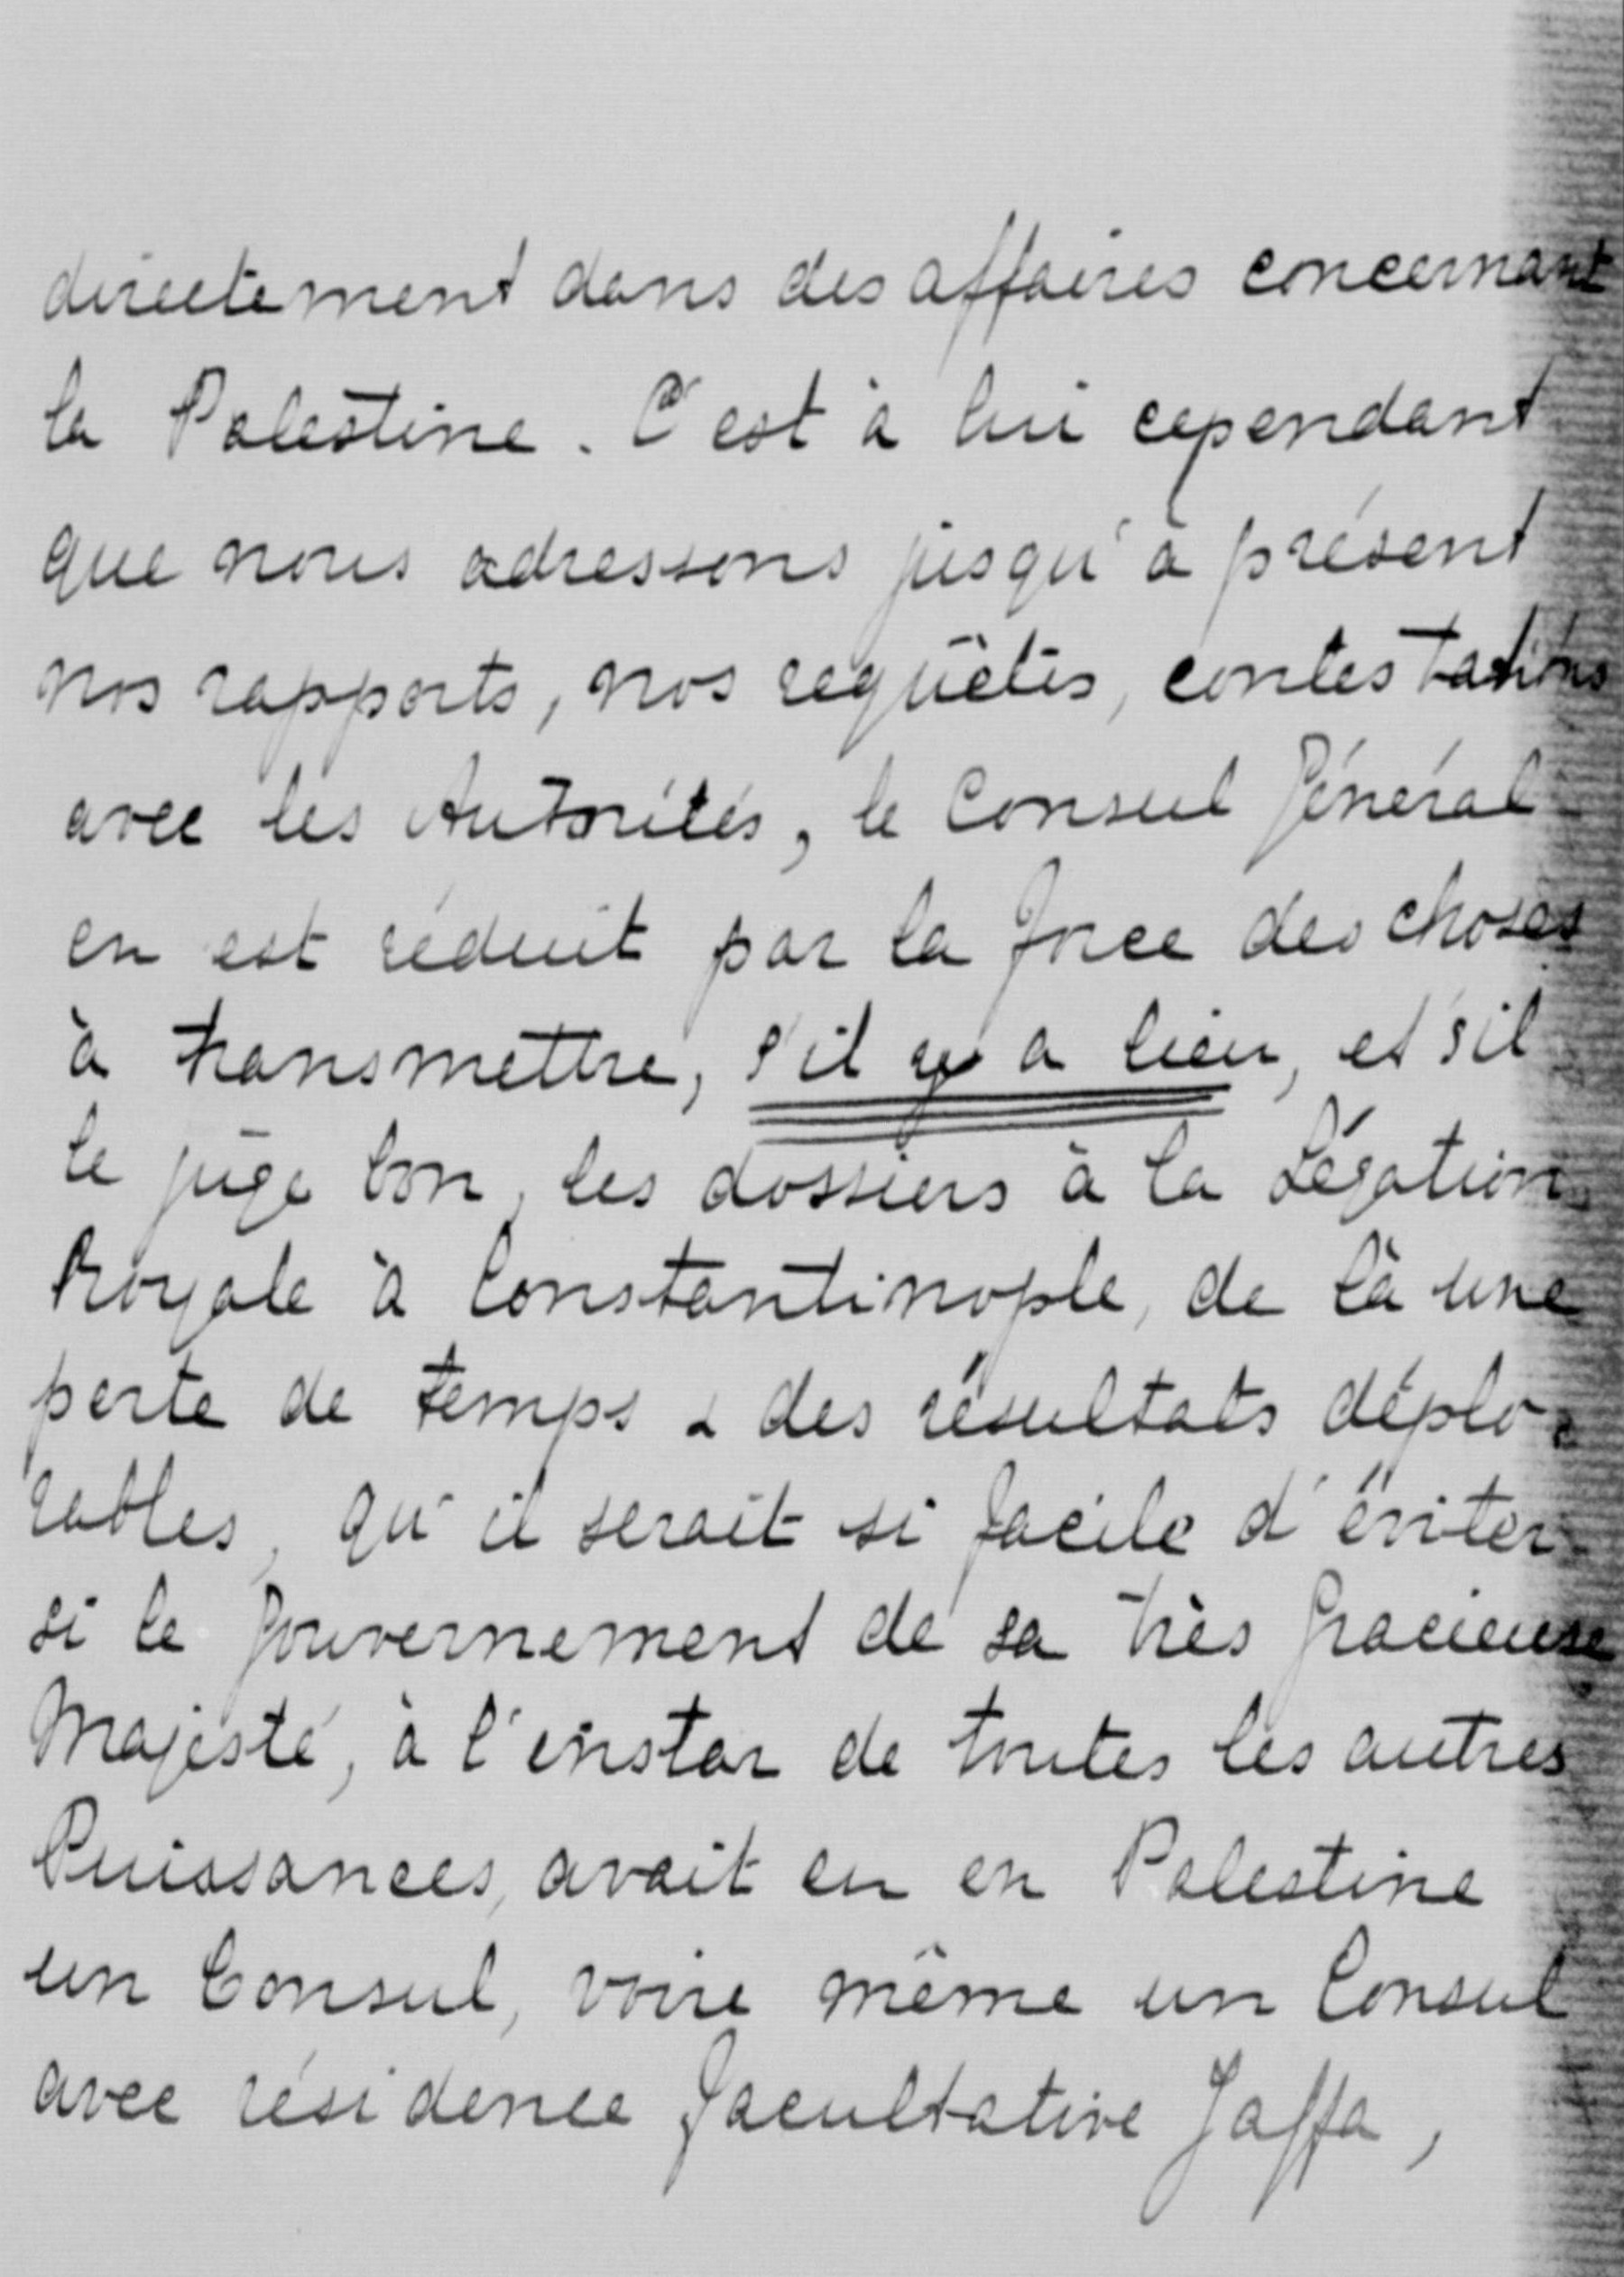 directement dans des affaires concernant
la Palestine. C'est à lui cependant
que nous adressons jusqu'à présent
nos rapports, nos requêtes, contestations
avec les Autorités, le Consul Général
en est réduit par la force des choses
à transmettre, s'il y a lieu, et s'il
le juge bon, les dossiers à la Légation
Royale à Constantinople, de là une
perte de temps & des résultats déplo-
rables, qu'il serait si facile d'éviter
si le Gouvernement de sa très Gracieuse
Majesté, à l'instar de toutes les autres
Puissances, avait eu en Palestine
un Consul, voire même un Consul
avec résidence facultative Jaffa,